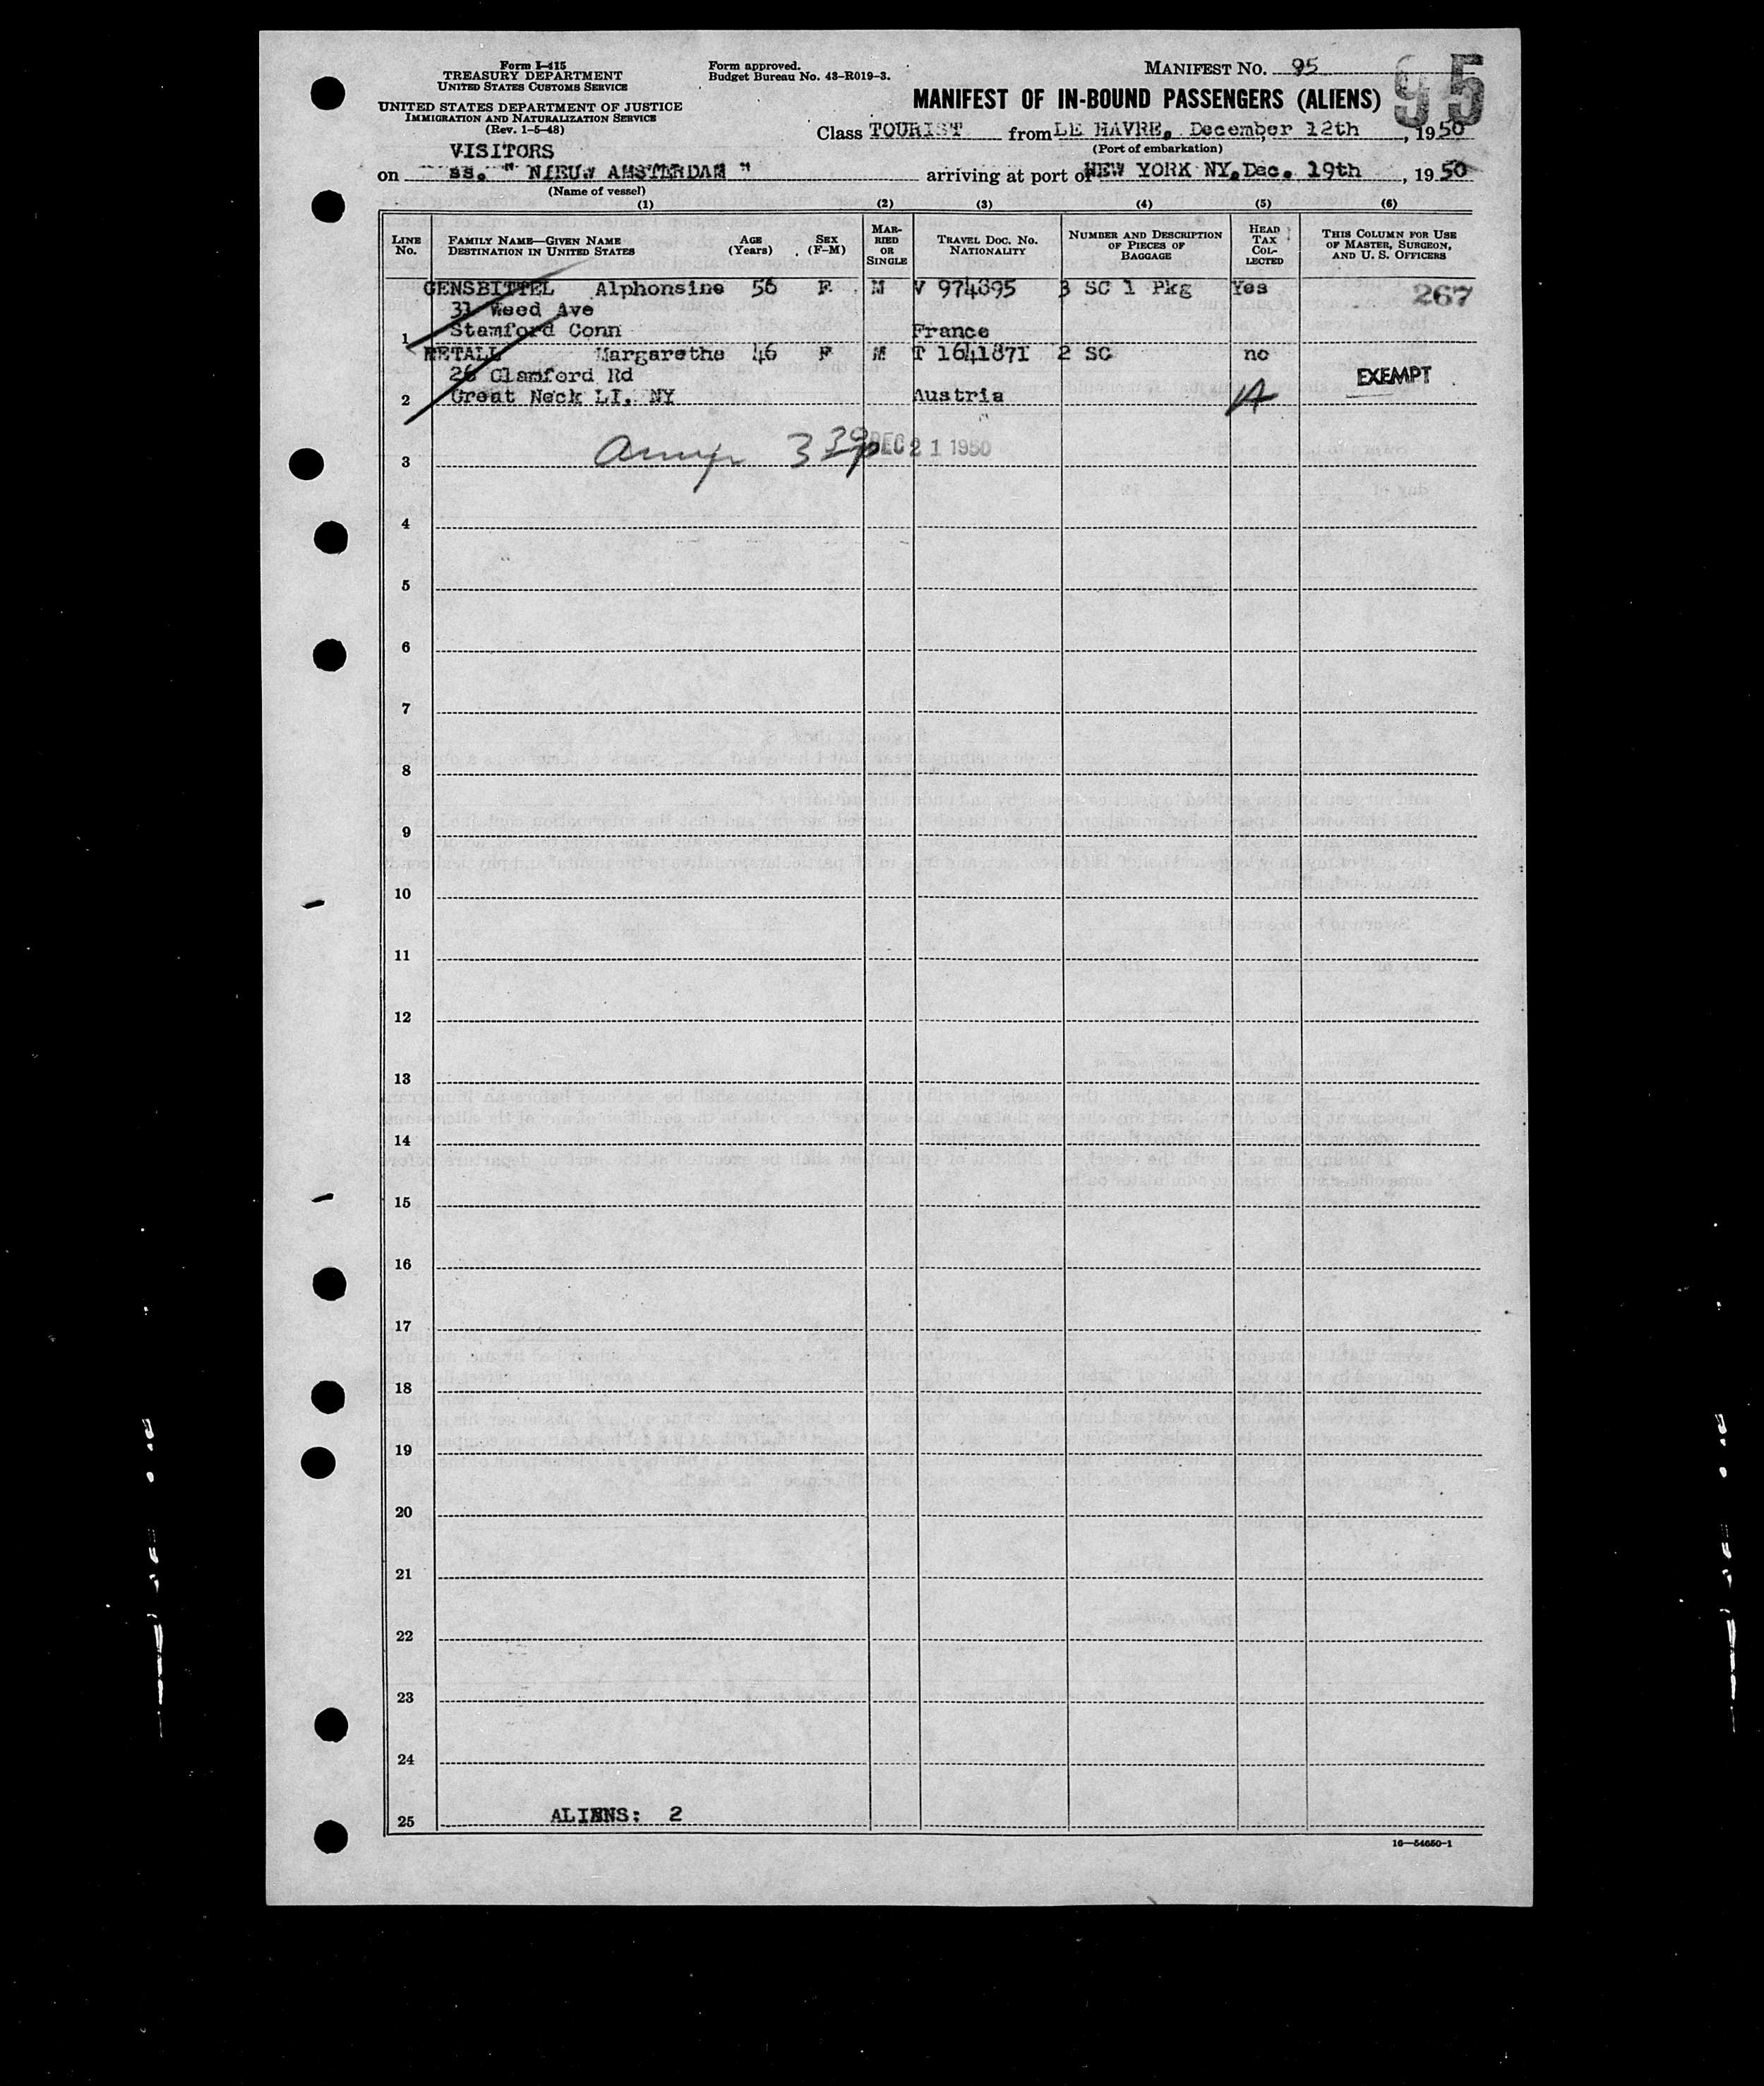 Form I-415
TREASURY DEPARTMENT
UNITED STATES CUSTOMS SERVICE
UNITED STATES DEPARTMENT OF JUSTICE
IMMIGRATION AND NATURALIZATION SERVICE
(Rev. 1-5-48)
Form approved.
Budget Bureau No. 43-R019-3.
MANIFEST NO. 95
95
MANIFEST OF IN-BOUND PASSENGERS (ALIENS)
Class TOURIST from LE HAVRE, December 12th, 1950
(Port of embarkation)
VISITORS
on ss. " NIEUW AMSTERDAM " arriving at port of NEW YORK NY, Dec. 19th, 1950
(Name of vessel)
(1) (2) (3) (4) (5) (6)
LINE No. FAMILY NAME—GIVEN NAME DESTINATION IN UNITED STATES AGE (Years) SEX (F-M) MARRIED OR SINGLE TRAVEL DOC. NO. NATIONALITY NUMBER AND DESCRIPTION OF PIECES OF BAGGAGE HEAD TAX COLLECTED THIS COLUMN FOR USE OF MASTER, SURGEON, AND U. S. OFFICERS
GENSBITTEL Alphonsine 56 F M V 974895 3 SC 1 Pkg Yes 267
31 Weed Ave
1 Stamford Conn France
RETALL Margarethe 46 F M T 1641871 2 SC no
26 Clamford Rd EXEMPT
2 Great Neck LI. NY Austria
3 3 39p DEC 21 1950
4
5
6
7
8
9
10
11
12
13
14
15
16
17
18
19
20
21
22
23
24
25 ALIENS: 2
16—54650-1